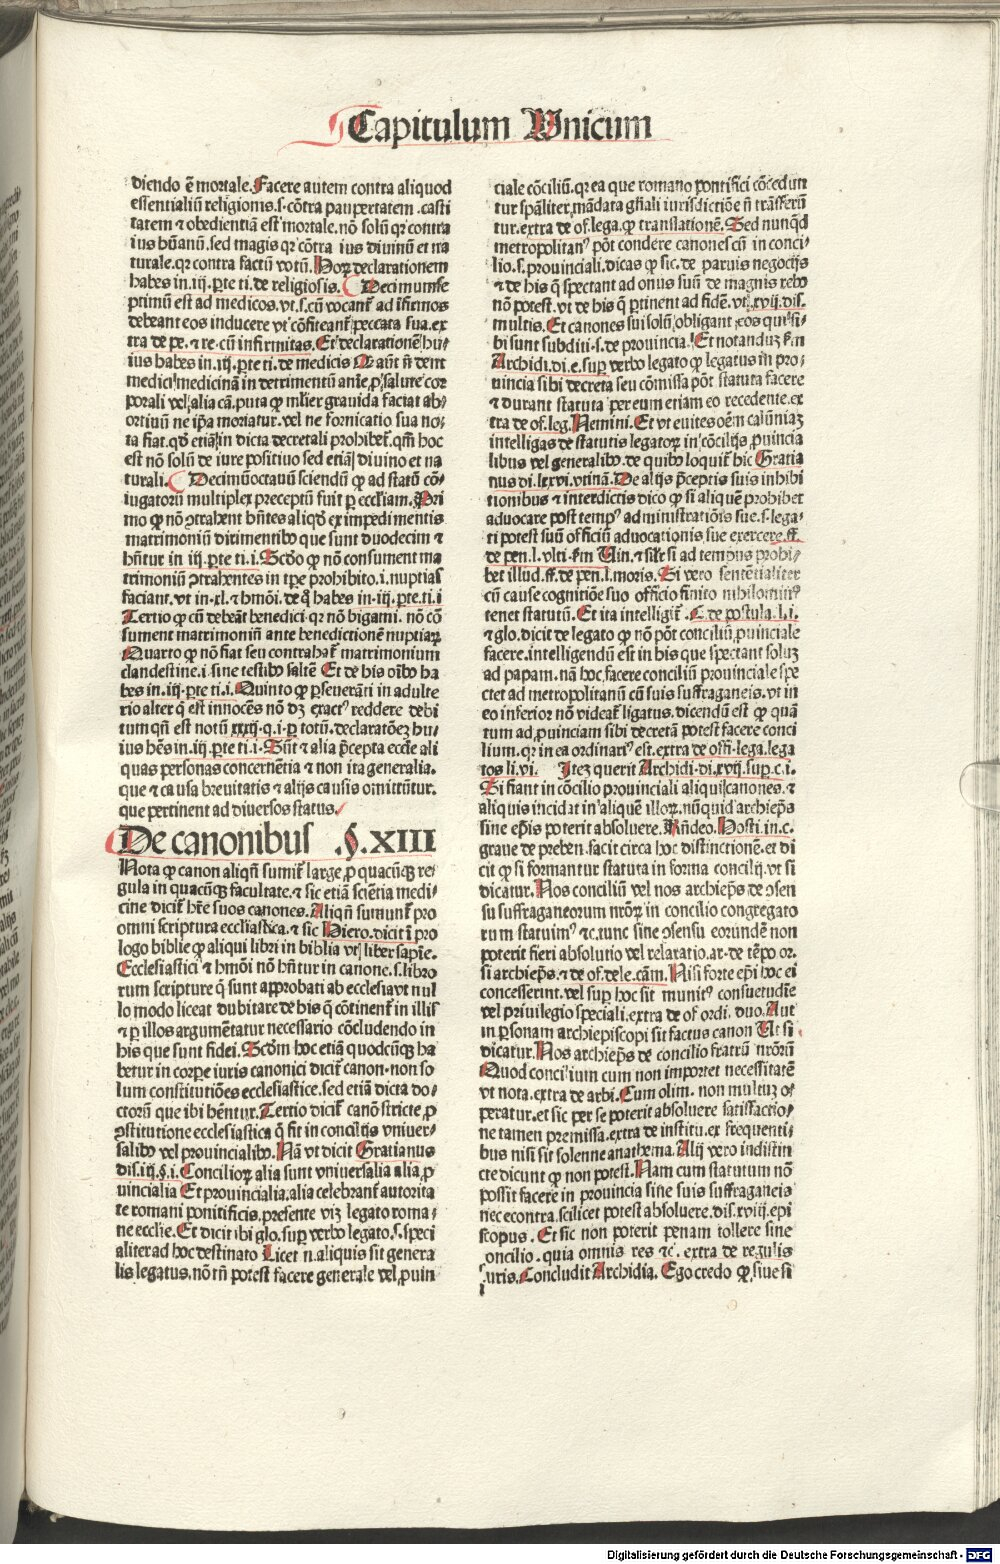 Capitulum Unicum
diendo ē mortale. Facere autem contra aliquod
essentialiū religionis. s. cōtra paupertatem. casti
tatem ⁊ obedientiā est mortale. nō solū qꝛ contra
ius hūanū. sed magis qꝛ cōtra ius diuinū et na
turale. qꝛ contra factū votū. Hoꝝ declarationem
habes in. iij. ꝑte ti. de religiosis. Decimumse
ptimū est ad medicos. vt. s. cū vocant᷑ ad īfirmos
debeant eos inducere vt cōfiteant᷑ peccata sua. ex
tra de pe. ⁊ re. cū infirmitas. Et declarationē hu/
ius habes in. iij. ꝑte ti. de medicis Q aūt n̄ dent
medici medicinā in detrimentū anīe, ꝓ salute cor
porali vel alia cā. puta ꝙ mlier grauida faciat ab/
ortiuū ne ip̄a moriatur. vel ne fornicatio sua no/
ta fiat. qd̄ etiā in dicta decretali prohibet᷑. qm̄ hoc
est nō solū de iure positiuo sed etiā diuino et na
turali. Decimūoctauū sciendū ꝙ ad statū cō/
iugatorū multiplex preceptū fuit ꝑ eccl'iam. Pri
mo ꝙ nō ꝯtrahent hn̄tes aliqd̄ ex impedimentis
matrimoniū dirimentibꝰ que sunt duodecim ⁊
hn̄tur in iij. ꝑte ti. i. Scd̄o ꝙ nō consument ma
trimoniū ꝯtrahentes in tꝑe prohibito. i. nuptias
faciant. vt in. xl. ⁊ hmōi. de q̄ habes in. iij. ꝑte. ti. i
Tertio ꝙ cū debeāt benedici qꝛ nō bigami. nō cō
sument matrimoniū ante benedictionē nuptiaꝝ
Quarto ꝙ nō fiat seu contrahat᷑ matrimonium
clandestine. i. sine testibꝰ saltē Et de his oībꝰ ha
bes in. iij. ꝑte ti. i. Quinto ꝙ ꝑseuerāti in adulte
rio alter q̄ est innocēs nō dꝫ exactꝰ reddere debi
tum qn̄ est notū xxxij. q. i. ꝑ totū. declaratōeꝫ hu/
ius hēs in. iij. ꝑte ti. i. Sūt ⁊ alia p̄cepta eccl'ie ali
quas personas concernētia ⁊ non ita generalia.
que ⁊ causa breuitatis ⁊ alijs causis omittūtur.
que pertinent ad diuersos status.
De canonibus .§. XIII
Nota ꝙ canon aliqn̄ sumit᷑ large, ꝓ quacūqꝫ re/
gula in quacūqꝫ facultate. ⁊ sic etiā scīētia medi/
cine dicit᷑ hr̄e suos canones. Aliqn̄ sumunt᷑ pro
omni scriptura ecclīastica. ⁊ sic Hiero. dicit ī pro
logo biblie ꝙ aliqui libri in biblia vt liber sapīe.
Ecclesiastici ⁊ hmōi nō hn̄tur in canone. s. libro
rum scripture q̄ sunt approbati ab ecclesia vt nul
lo modo liceat dubitare de his q̄ cōtinent᷑ in illis
⁊ ꝑ illos argumētatur necessario cōcludendo in
his que sunt fidei. Scd̄m hoc etiā quodcūqꝫ ha
betur in corpe iuris canonici dicit᷑ canon. non so
lum constitutiōes ecclesiastice. sed etiā dicta do/
ctorū que ibi hēntur. Tertio dicit᷑ canō stricte, ꝓ
ꝯstitutione ecclesiastica q̄ fit in concilijs vniuer/
salibꝰ vel prouincialibꝰ. Nā vt dicit Gratianus
dis. iij. §. i. Concilioꝝ alia sunt vniuersalia alia, ꝓ
uincialia Et prouincialia, alia celebrant᷑ autorita
te romani pontificis, presente viꝫ legato roma/
ne eccl'ie. Et dicit ibi glo. suꝑ verbo legato, s. speci
aliter ad hoc destinato Licet n. aliquis sit genera
lis legatus. nō tn̄ potest facere generale vel, ꝓuin
ciale cōciliū. qꝛ ea que romano pontifici cōcedun
tur spāliter, mādata gn̄ali iurisdictiōe n̄ trāsferū
tur. extra de of. lega. ꝙ translatione. Sed nunqd̄
metropolitanꝰ pōt condere canones cū in conci/
lio. s. prouinciali. dicas ꝙ sic. de paruis negocijs
⁊ de his q̄ spectant ad onus suū de magnis rebꝰ
nō potest. vt de his q̄ ꝑtinent ad fidē. vt. xvij. dis.
multis. Et canones sui solū obligant eos qui si/
bi sunt subditi. s. de prouincia. Et notanduꝫ ẜm
Archidi. di. e. suꝑ verbo legato ꝙ legatus in pro/
uincia sibi decreta seu cōmissa pōt statuta facere
⁊ durant statuta per eum etiam eo recedente. ex
tra de of. leg. Nemini. Et vt euites oēm calūniaꝫ
intelligas de statutis legatoꝝ in cōcilijs, ꝓuincia
libus vel generalibꝰ. de quibꝰ loquit᷑ hic Gratia
nus di. lxxvi. vtinā. De alijs p̄ceptis suis inhibi
tionibus ⁊ interdictis dico ꝙ si aliquē prohibet
aduocare post tempꝰ administratiōis sue. s. lega/
ti potest suū officiū aduocationis sue exercere. ff.
de pen. l. vlti. ẜm Uin. ⁊ sil'r si ad tempus prohi/
bet illud. ff. de pen. l. moris. Si vero sententialiter
cū cause cognitiōe suo officio finito nihilominꝰ
tenet statutū. Et ita intelligit᷑. C. de postula. l. i.
⁊ glo. dicit de legato ꝙ nō pōt conciliū, ꝓuinciale
facere. intelligendū est in his que spectant soluꝫ
ad papam. nā hoc facere conciliū prouinciale spe
ctet ad metropolitanū cū suis suffraganeis. vt in
eo inferior nō videat᷑ ligatus. dicendū est ꝙ quā
tum ad, ꝓuinciam sibi decretā potest facere conci
lium. qꝛ in ea ordinariꝰ est. extra de offi. lega. lega
tos li. vi. Iteꝫ querit Archidi. di. xvij. suꝑ. c. i.
Si fiant in cōcilio prouinciali aliqui canones. ⁊
aliquis incidat in aliquē illoꝝ. nūquid archiep̄s
sine ep̄is poterit absoluere. Rn̄deo. Hosti. in. c.
graue de preben. facit circa hoc distinctionē. et di
cit ꝙ si formantur statuta in forma concilij. vt si
dicatur. Nos conciliū vel nos archiep̄s de ꝯsen
su suffraganeorum nr̄oꝝ in concilio congregato
rum statuimꝰ ⁊c. tunc sine ꝯsensu eorundē non
poterit fieri absolutio vel relaratio. ar. de tēpo or.
si archiep̄s. ⁊ de of. dele. cām. Nisi forte ep̄i hoc ei
concesserint. vel suꝑ hoc sit munitꝰ consuetudīe
vel priuilegio speciali. extra de of ordi. duo. Aut
in ꝑsonam archiepiscopi sit factus canon Ut si
dicatur. Nos archiep̄s de concilio fratrū nr̄orū
Quod concilium cum non importet necessitatē
vt nota. extra de arbi. Cum olim. non multuꝫ o/
peratur. et sic per se poterit absoluere satisfactio/
ne tamen premissa. extra de institu. ex frequenti/
bus nisi sit solenne anathema. Alij vero indistin
cte dicunt ꝙ non potest. Nam cum statutum nō
possit facere in prouincia sine suis suffraganeis
nec econtra. scilicet potest absoluere. dis. xviij. epi
scopus. Et sic non poterit penam tollere sine
concilio. quia omnis res ⁊c. extra de regulis
iuris. Concludit Archidia. Ego credo ꝙ, siue si
Digitalisierung gefördert durch die Deutsche Forschungsgemeinschaft - DFG